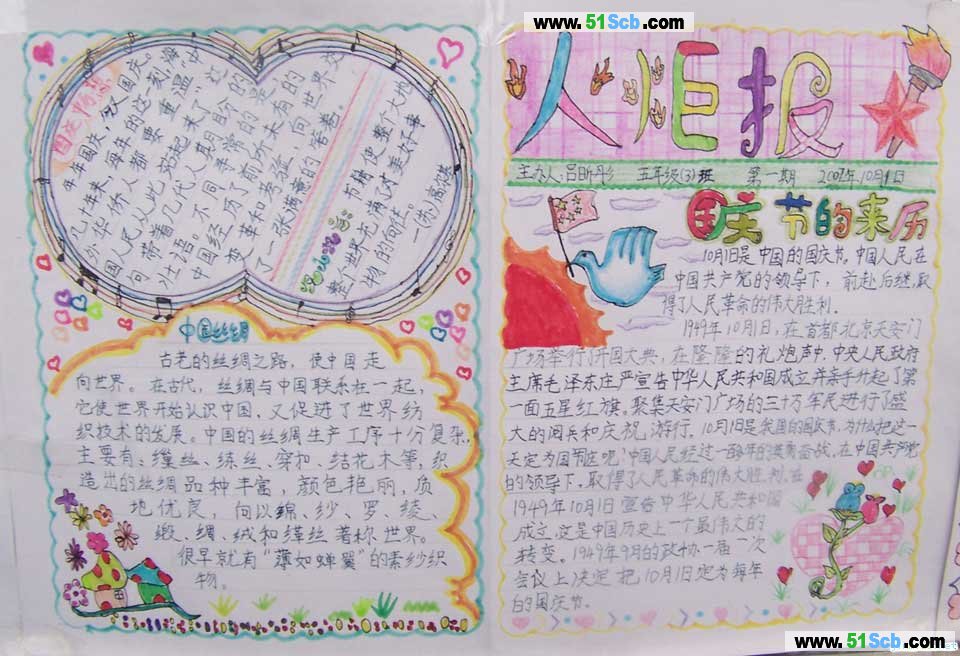 www.51Scb.com
火炬报
主办人:吕昕彤 五年级(3)班 第一期 2007年10月1日
国庆节的来历
10月1日是中国的国庆节。中国人民在
中国共产党的领导下,前赴后继,取
得了人民革命的伟大胜利.
1949年10月1日,在首都北京天安门
广场举行了开国大典,在隆隆的礼炮声中,中央人民政府
主席毛泽东庄严宣告中华人民共和国成立并亲手升起了第
一面五星红旗。聚集天安门广场的三十万军民进行了盛
大的阅兵和庆祝游行。10月1日是我国的国庆节,为什么把这一
天定为国节庇呢?中国人民经过一百多年的英勇奋战,在中国共产党
的领导下,取得了人民革命的伟大胜利。在
1949年10月1日宣告中华人民共和国
成立,这是中国历史上一个最伟大的
转变。1949年9月的政协一届一次
会议上决定把10月1日定为每年
的国庆节。
国庆随想
年年国庆,又国庆。
几十年来,每年的这一刻海内
外华侨人都要重温“中
国人民从此站起来了”这
句带着几代人期盼的
壮语。不同寻常的是
中国经历了前所未有的
变革和考验。向世界交
了一张满意的答卷。
书籍使整个大地
整个世界充满对美好事
物的向往。
—(伪)高祺
中国丝绸
古老的丝绸之路,使中国走
向世界。在古代,丝绸与中国联系在一起,
它使世界开始认识中国,又促进了世界纺
织技术的发展。中国的丝绸生产工序十分复杂,
主要有:缫丝、练丝、穿扣、结花本等,织
造出的丝绸品种丰富,颜色艳丽,质
地优良,向以绵、纱、罗、绫、
缎、绸、绒和缂丝著称世界。
很早就有“薄如蝉翼”的素纱织
物。
www.51Scb.com